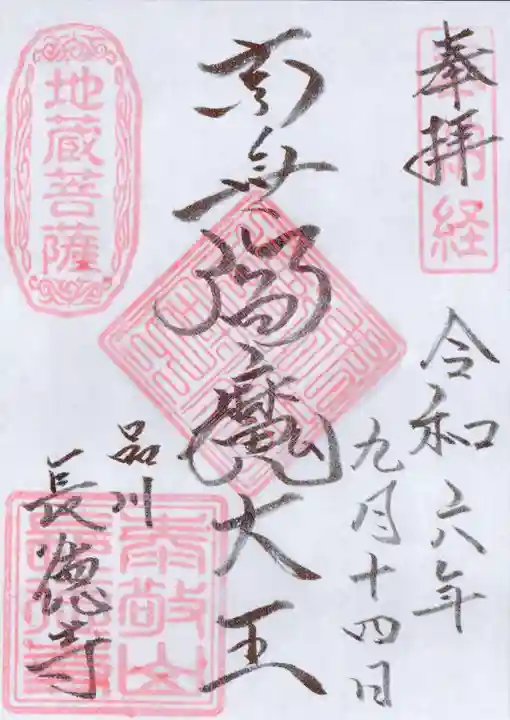 奉拝
奉納経
令和六年
九月十四日
南無閻魔大王
地蔵菩薩
品川
長徳寺